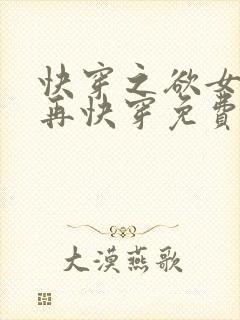 快穿之欲女
再快穿免費
大漠燕歌